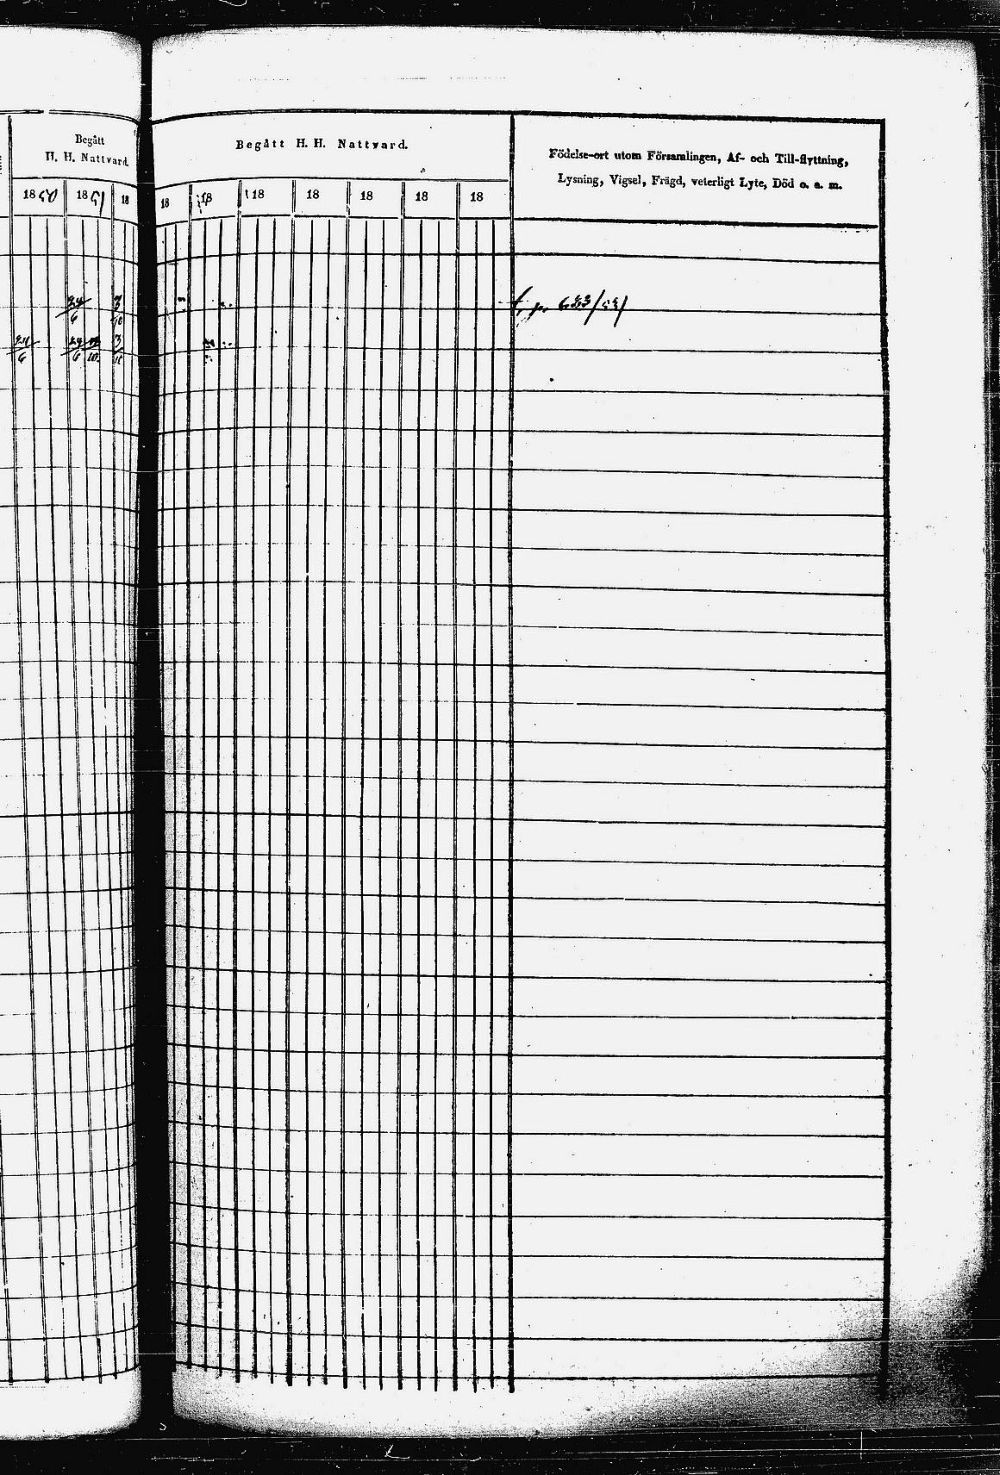 Begått
H. H. Nattvard.
1850 1851 18
24/6 3/10
24/6 24/6 3/11
Begått H. H. Nattvard.
18 18 18 18 18 18 18
Födelse-ort utom Församlingen, Af- och Till-flyttning,
Lysning, Vigsel, Frägd, veterligt Lyte, Död o. a. m.